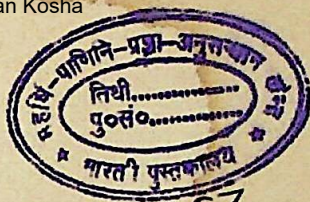 an Kosha
महर्षि-पाणिनि-प्रज्ञा-अनुसन्धान
तिथी..................
पु०सं०..................
भारती पुस्तकालय